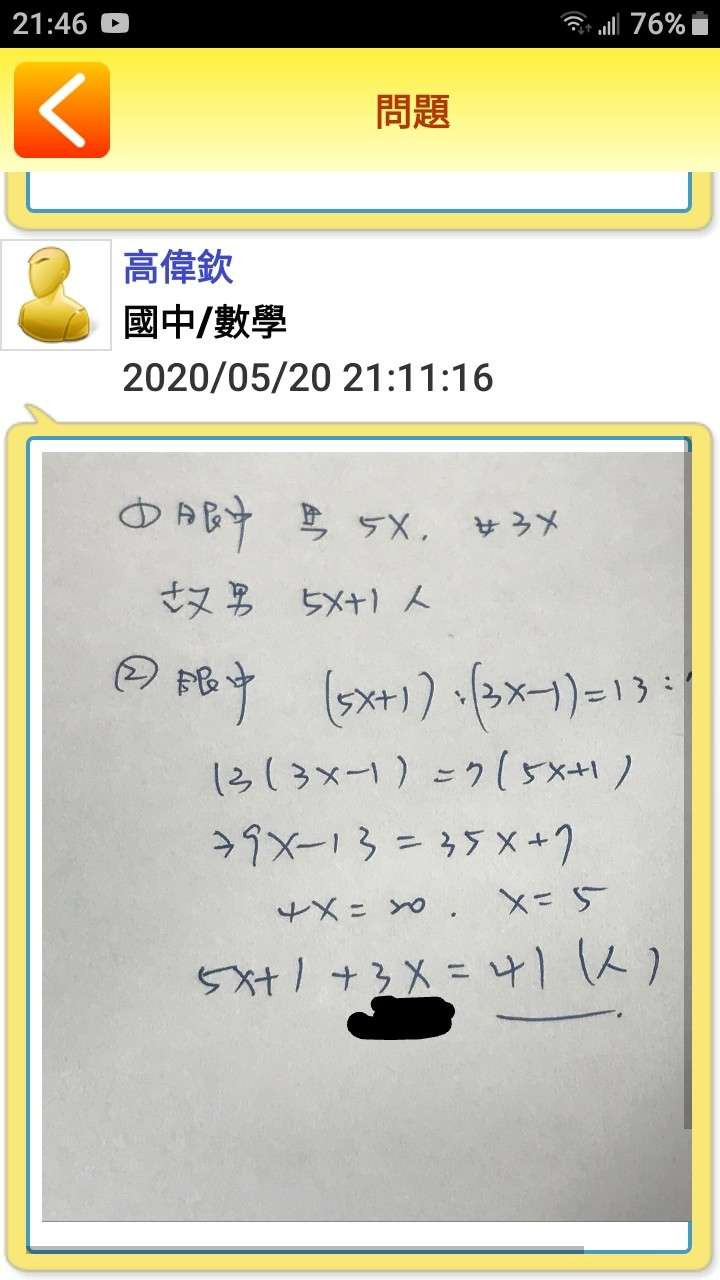 21:46 76%
問題
高偉欽
國中/數學
2020/05/20 21:11:16
① 眼中 男 5X, 女 3X
故男 5X+1 人
② 眼中 (5X+1):(3X-1)=13:
13(3X-1)=7(5X+1)
39X-13=35X+7
4X=20. X=5
5X+1+3X=41(人)